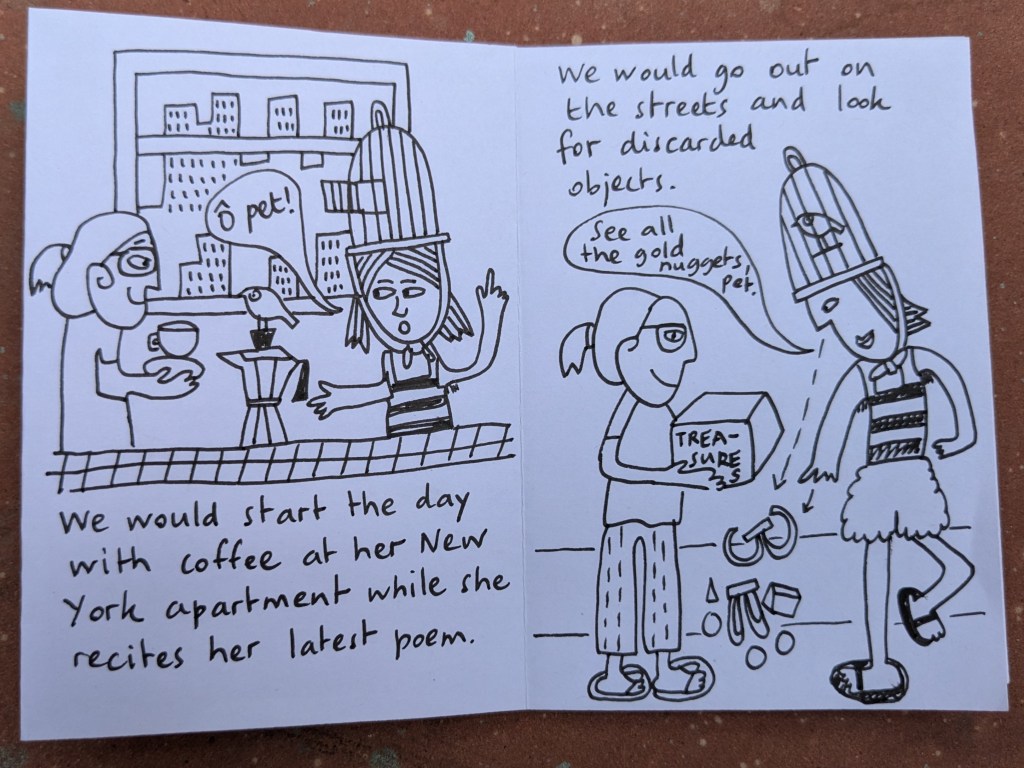 ô pet!
We would start the day
with coffee at her New
York apartment while she
recites her latest poem.
We would go out on
the streets and look
for discarded
objects.
See all
the gold
nuggets,
pet.
TREA-
SURES